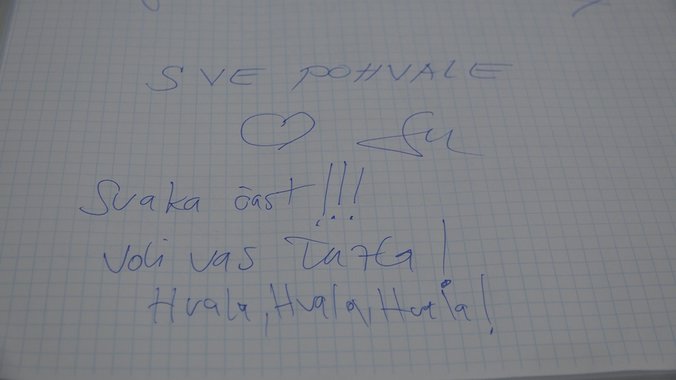 SVE POHVALE
Svaka čast!!!
Voli vas Tuzla!
Hvala, Hvala, Hvala!